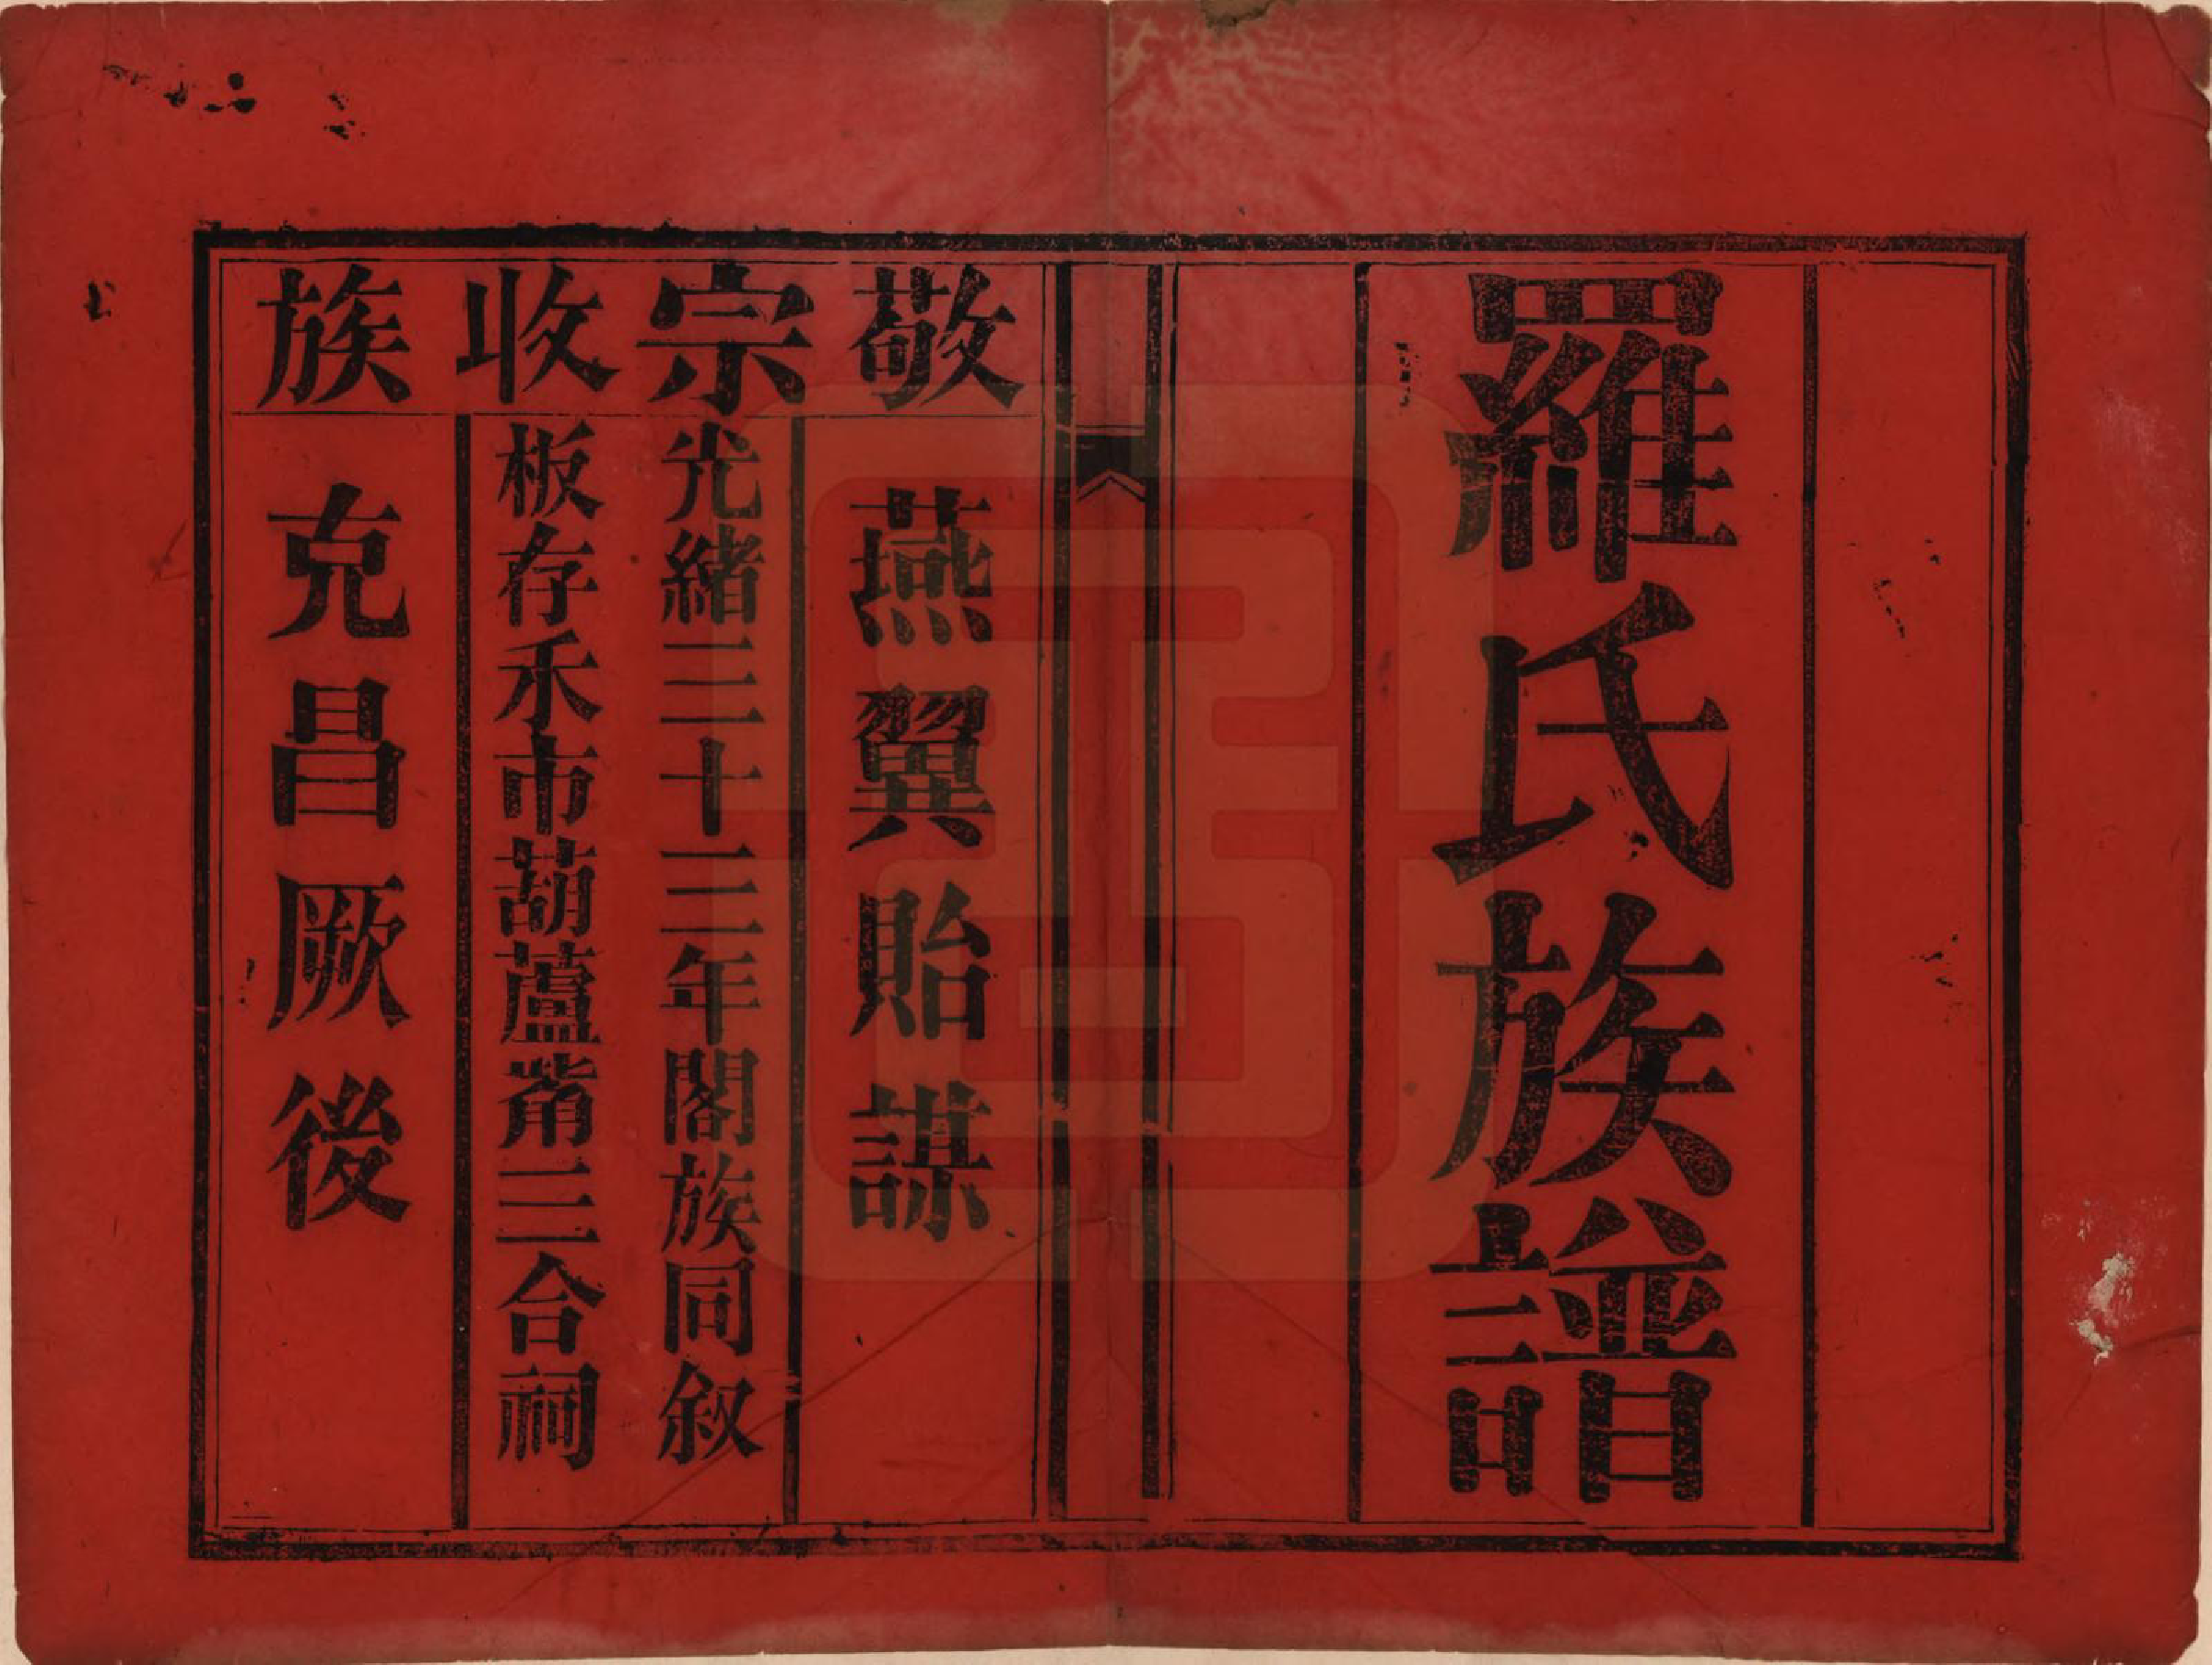 羅氏族譜
敬宗收族
燕翼貽謀
光緒三十三年閣族同叙
板存禾市葫蘆觜三合祠
克昌厥後